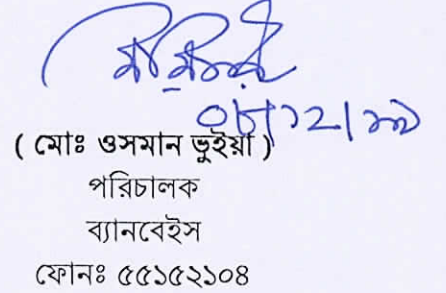 ( মোঃ ওসমান ভূইয়া )
পরিচালক
ব্যানবেইস
ফোনঃ ৫৫১৫২১০৪